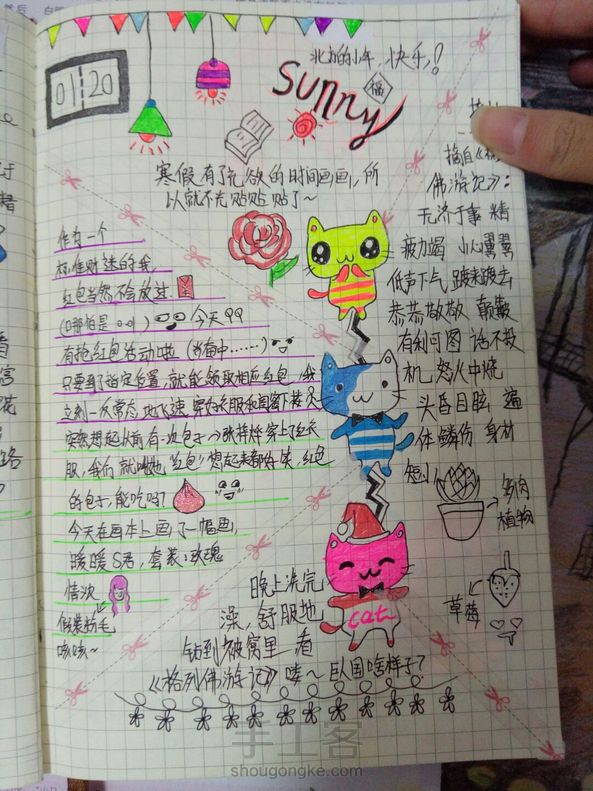 01 20
北方的小年，快乐！
sunny
福
寒假有了充欲的时间画画，所
以就不去贴贴贴了~
摘自《格
佛游记》：
无济于事 精
疲力竭 小心翼翼
低声下气 踱来踱去
恭恭敬敬 颠簸
有利可图 话不投
机 怒火中烧
头昏目眩 遍
体鳞伤 身材
短小
作为一个
标准财迷的我，
红包当然不会放过
（哪怕是0.01）今天99
有抢红包活动啦（当看中……）
只要到了指定位置，就能领取相应红包，我
立刻一反常态，地飞速穿好衣服
突然想起以前有一次包子→张梓烨穿上了红衣
服，我们就叫她"红包"想起来都好笑，红包
的包子，能吃吗？
今天在画本上画了一幅画，
暖暖S君，套装：玫瑰
情浓
假装粉毛
咳咳~
多肉
植物
草莓
cat
晚上洗完
澡，舒服地
钻到被窝里 看
《格列佛游记》喽~ 巨人国啥样子？
手工客
shougongke.com